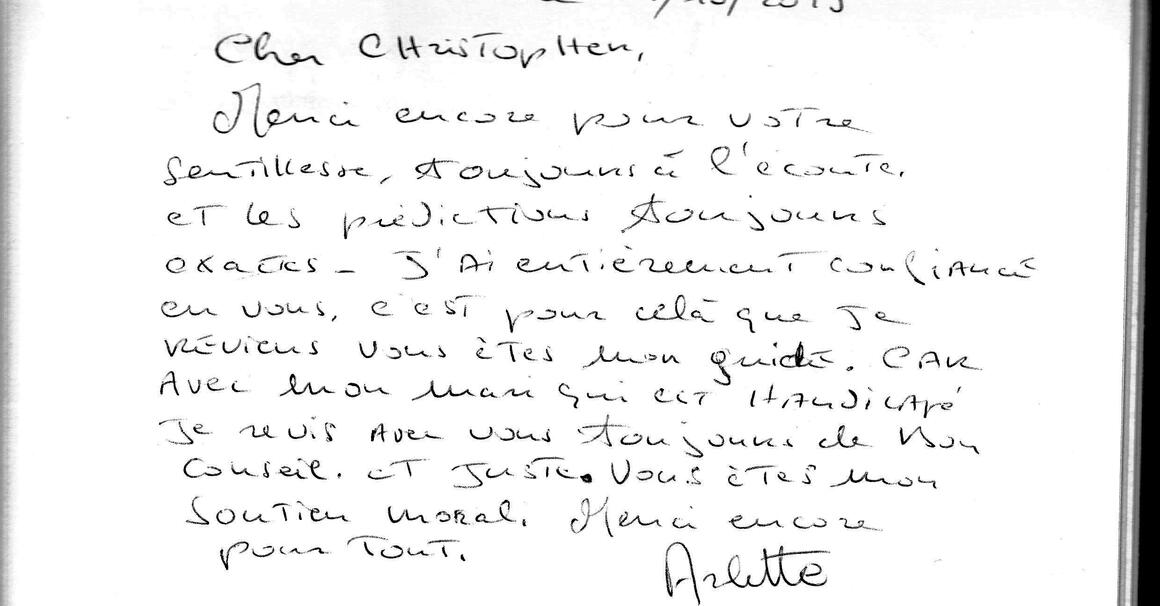 /10/2015
Cher CHristopHer,
Merci encore pour votre
gentillesse, toujours à l'écoute.
et les prédictions toujours
exactes - J'Ai entièrement confiance
en vous, c'est pour celà que je
Réviens vous êtes mon guide. CAR
Avec mon mari qui est HAndicapé
Je revis Avec vous toujours de bon
conseil. et juste. Vous êtes mon
soutien moral. Merci encore
pour Tout.
Arlette